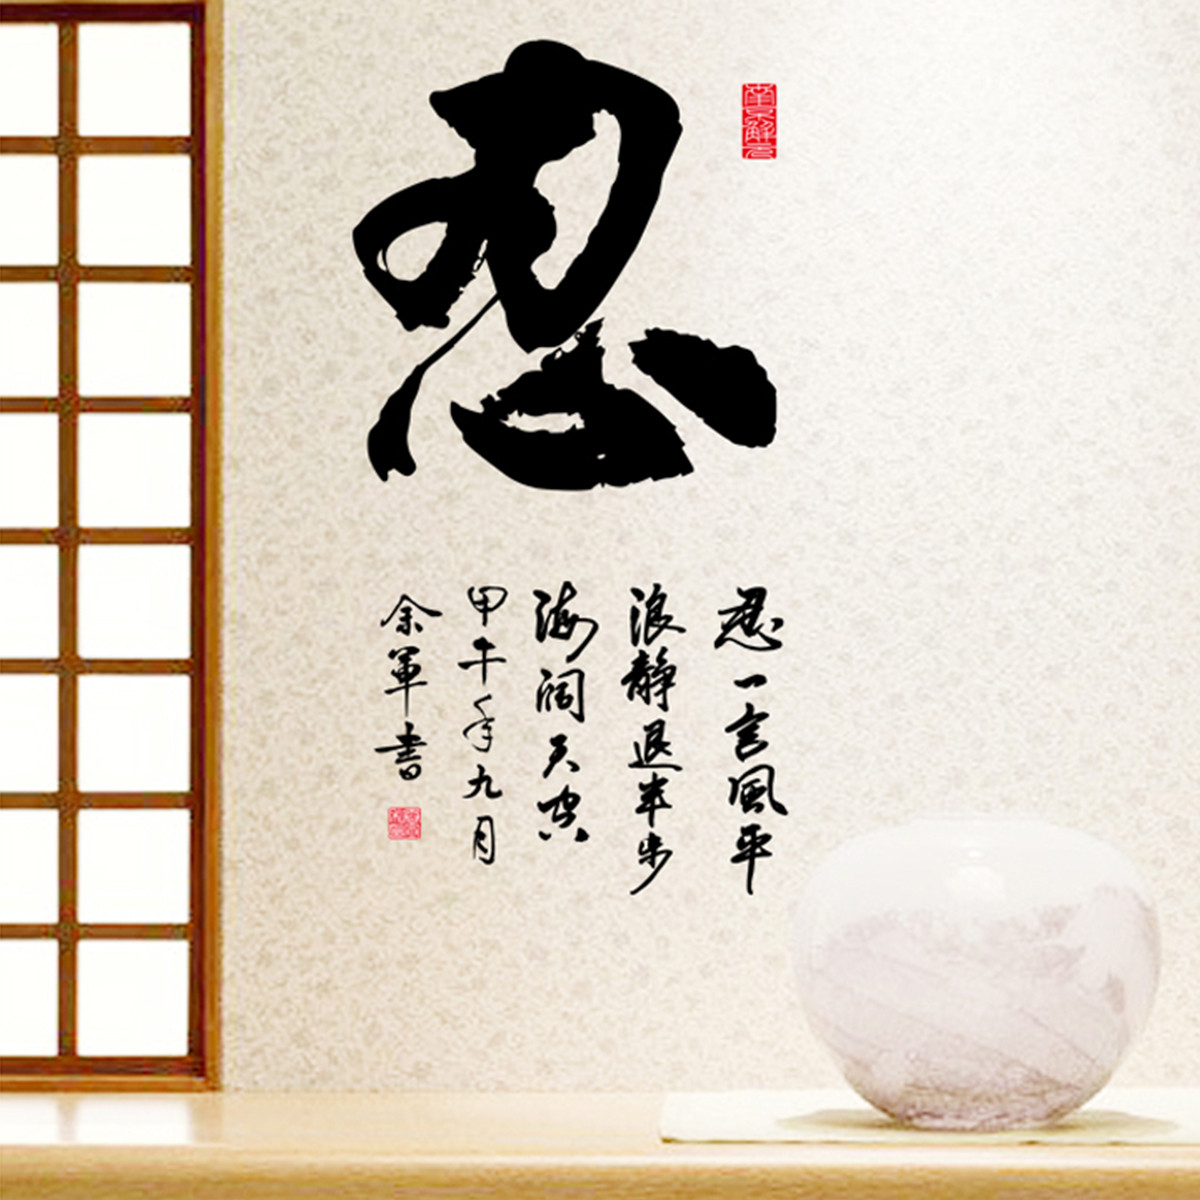 忍
忍一言風平
浪静退半步
海阔天空
甲午年九月
余軍書